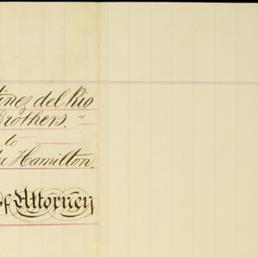 tinez del Rio
Brothers."
to
Hamilton.
of Attorney